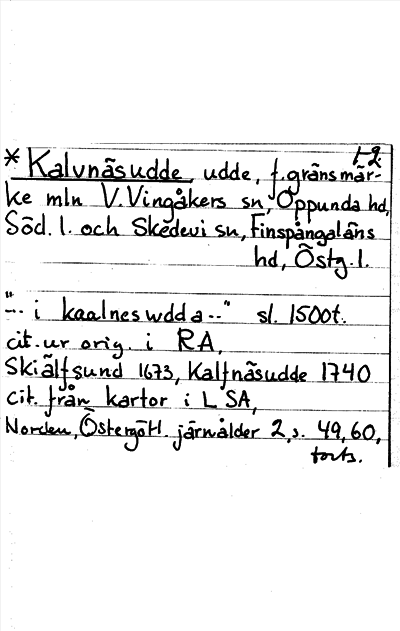 1-2
* Kalvnäsudde, udde, f. gränsmär-
ke mln V. Vingåkers sn, Oppunda hd,
Söd. l. och Skedevi sn, Finspångaläns
hd, Östg. l.
"-- i kaalneswdda --" sl. 1500t.
cit. ur orig. i RA,
Skiälfsund 1673, Kalfnäsudde 1740
cit. från kartor i LSA,
Norden, Östergötl. järnålder 2, s. 49, 60,
forts.